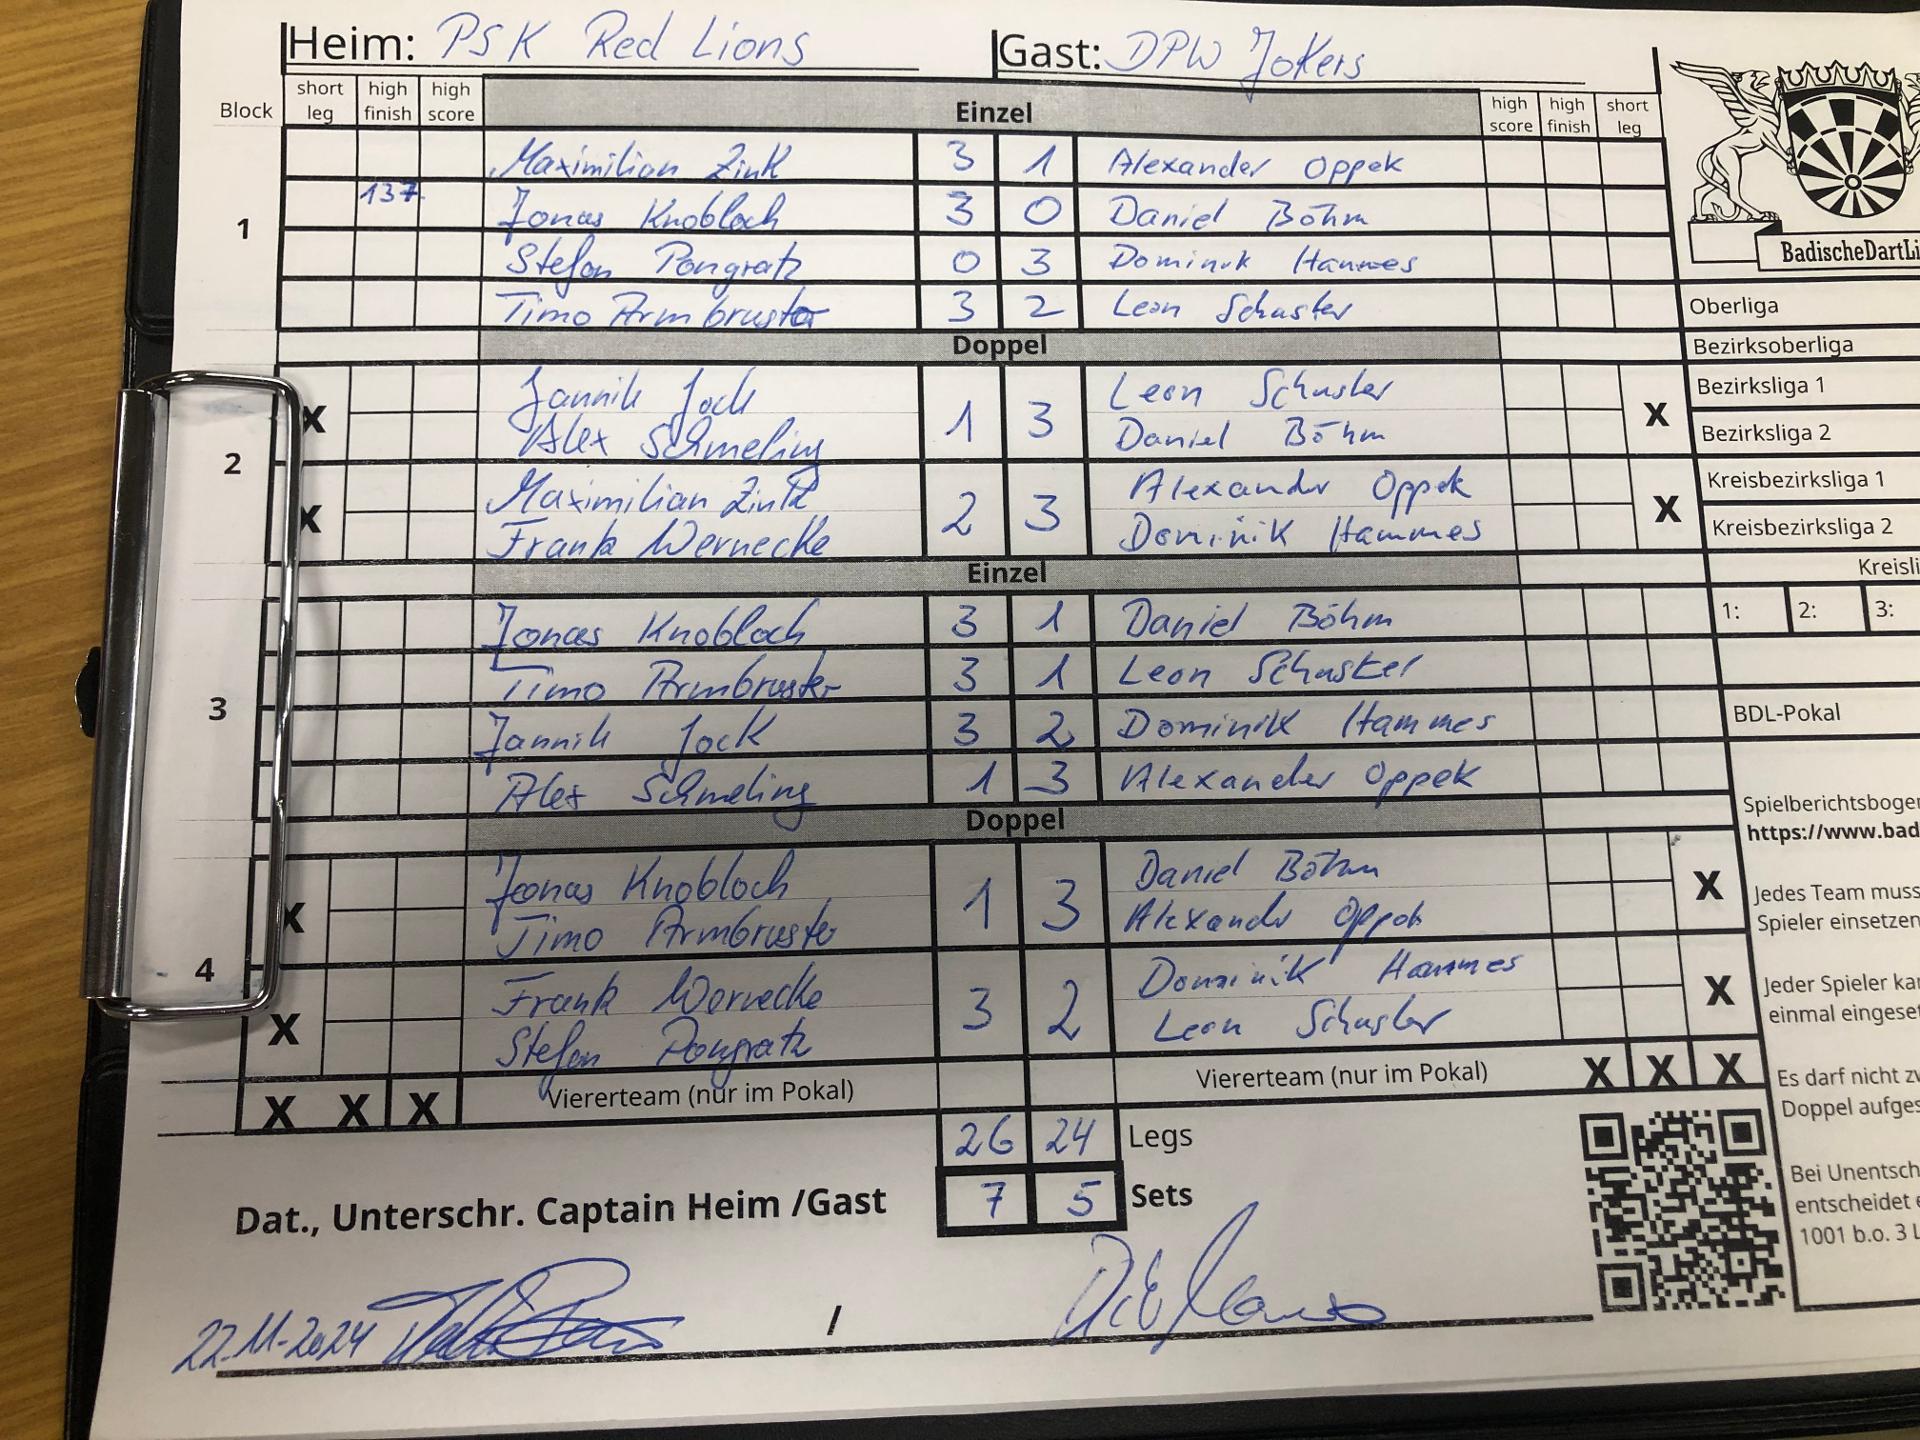 Heim: PSK Red Lions Gast: DPW Jokers
Block short leg high finish high score Einzel high score high finish short leg
Maximilian Zink 3 1 Alexander Oppek
137 Jonas Knobloch 3 0 Daniel Böhm
1
Stefan Pongratz 0 3 Dominik Hammes
BadischeDartLi
Timo Armbruster 3 2 Leon Schuster
Oberliga
Doppel
Bezirksoberliga
Jannik Jock 1 3 Leon Schuster
X X
Bezirksliga 1
Alex Schmeling Daniel Böhm
Bezirksliga 2
2
Maximilian Zink 2 3 Alexander Oppek
X X
Kreisbezirksliga 1
Frank Wernecke Dominik Hammes
Kreisbezirksliga 2
Einzel
Kreisli
Jonas Knobloch 3 1 Daniel Böhm
1: 2: 3:
Timo Armbruster 3 1 Leon Schuster
3
Jannik Jock 3 2 Dominik Hammes
BDL-Pokal
Alex Schmeling 1 3 Alexander Oppek
Doppel
Spielberichtsboger
https://www.bad
Jonas Knobloch 1 3 Daniel Böhm
X X
Timo Armbruster Alexander Oppek
Jedes Team muss
Spieler einsetzen
4
Frank Wernecke 3 2 Dominik Hammes
X X
Stefan Pongratz Leon Schuster
Jeder Spieler kar
einmal eingeset
X X X Viererteam (nur im Pokal) Viererteam (nur im Pokal) X X X
Es darf nicht zv
Doppel aufges
26 24 Legs
7 5 Sets
Bei Unentsch
entscheidet e
1001 b.o. 3 L
Dat., Unterschr. Captain Heim /Gast
22.11.2024 /